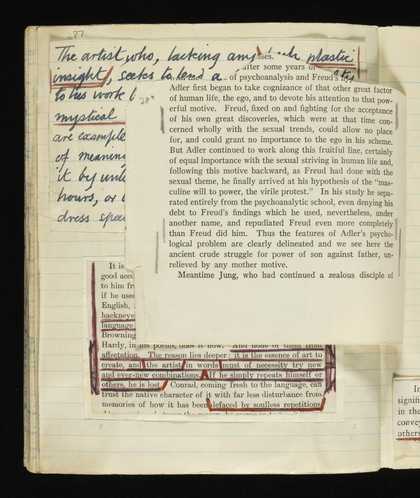 27
The artist who, lacking any plastic
insight, seeks to lend a
to his work b
mystical
are example
of meanin
it by unie
hours, or
dress spea
after some years of
of psychoanalysis and Freud's
Adler first began to take cognizance of that other great factor
of human life, the ego, and to devote his attention to that pow-
erful motive. Freud, fixed on and fighting for the acceptance
of his own great discoveries, which were at that time con-
cerned wholly with the sexual trends, could allow no place
for, and could grant no importance to the ego in his scheme.
But Adler continued to work along this fruitful line, certainly
of equal importance with the sexual striving in human life and,
following this motive backward, as Freud had done with the
sexual theme, he finally arrived at his hypothesis of the "mas-
culine will to power, the virile protest." In his study he sepa-
rated entirely from the psychoanalytic school, even denying his
debt to Freud's findings which he used, nevertheless, under
another name, and repudiated Freud even more completely
than Freud did him. Thus the features of Adler's psycho-
logical problem are clearly delineated and we see here the
ancient crude struggle for power of son against father, un-
relieved by any mother motive.
Meantime Jung, who had continued a zealous disciple of
It is
good acc
to him fr
if he use
English,
hackneye
language
Browning
Hardy, in his poems, does it now. And none of them from
affectation. The reason lies deeper: it is the essence of art to
create, and the artist in words must of necessity try new
and ever-new combinations. If he simply repeats himself or
others, he is lost. Conrad, coming fresh to the language, can
trust the native character of it with far less disturbance from
memories of how it has been defaced by soulless repetitions
In
signifi
in the
convey
others